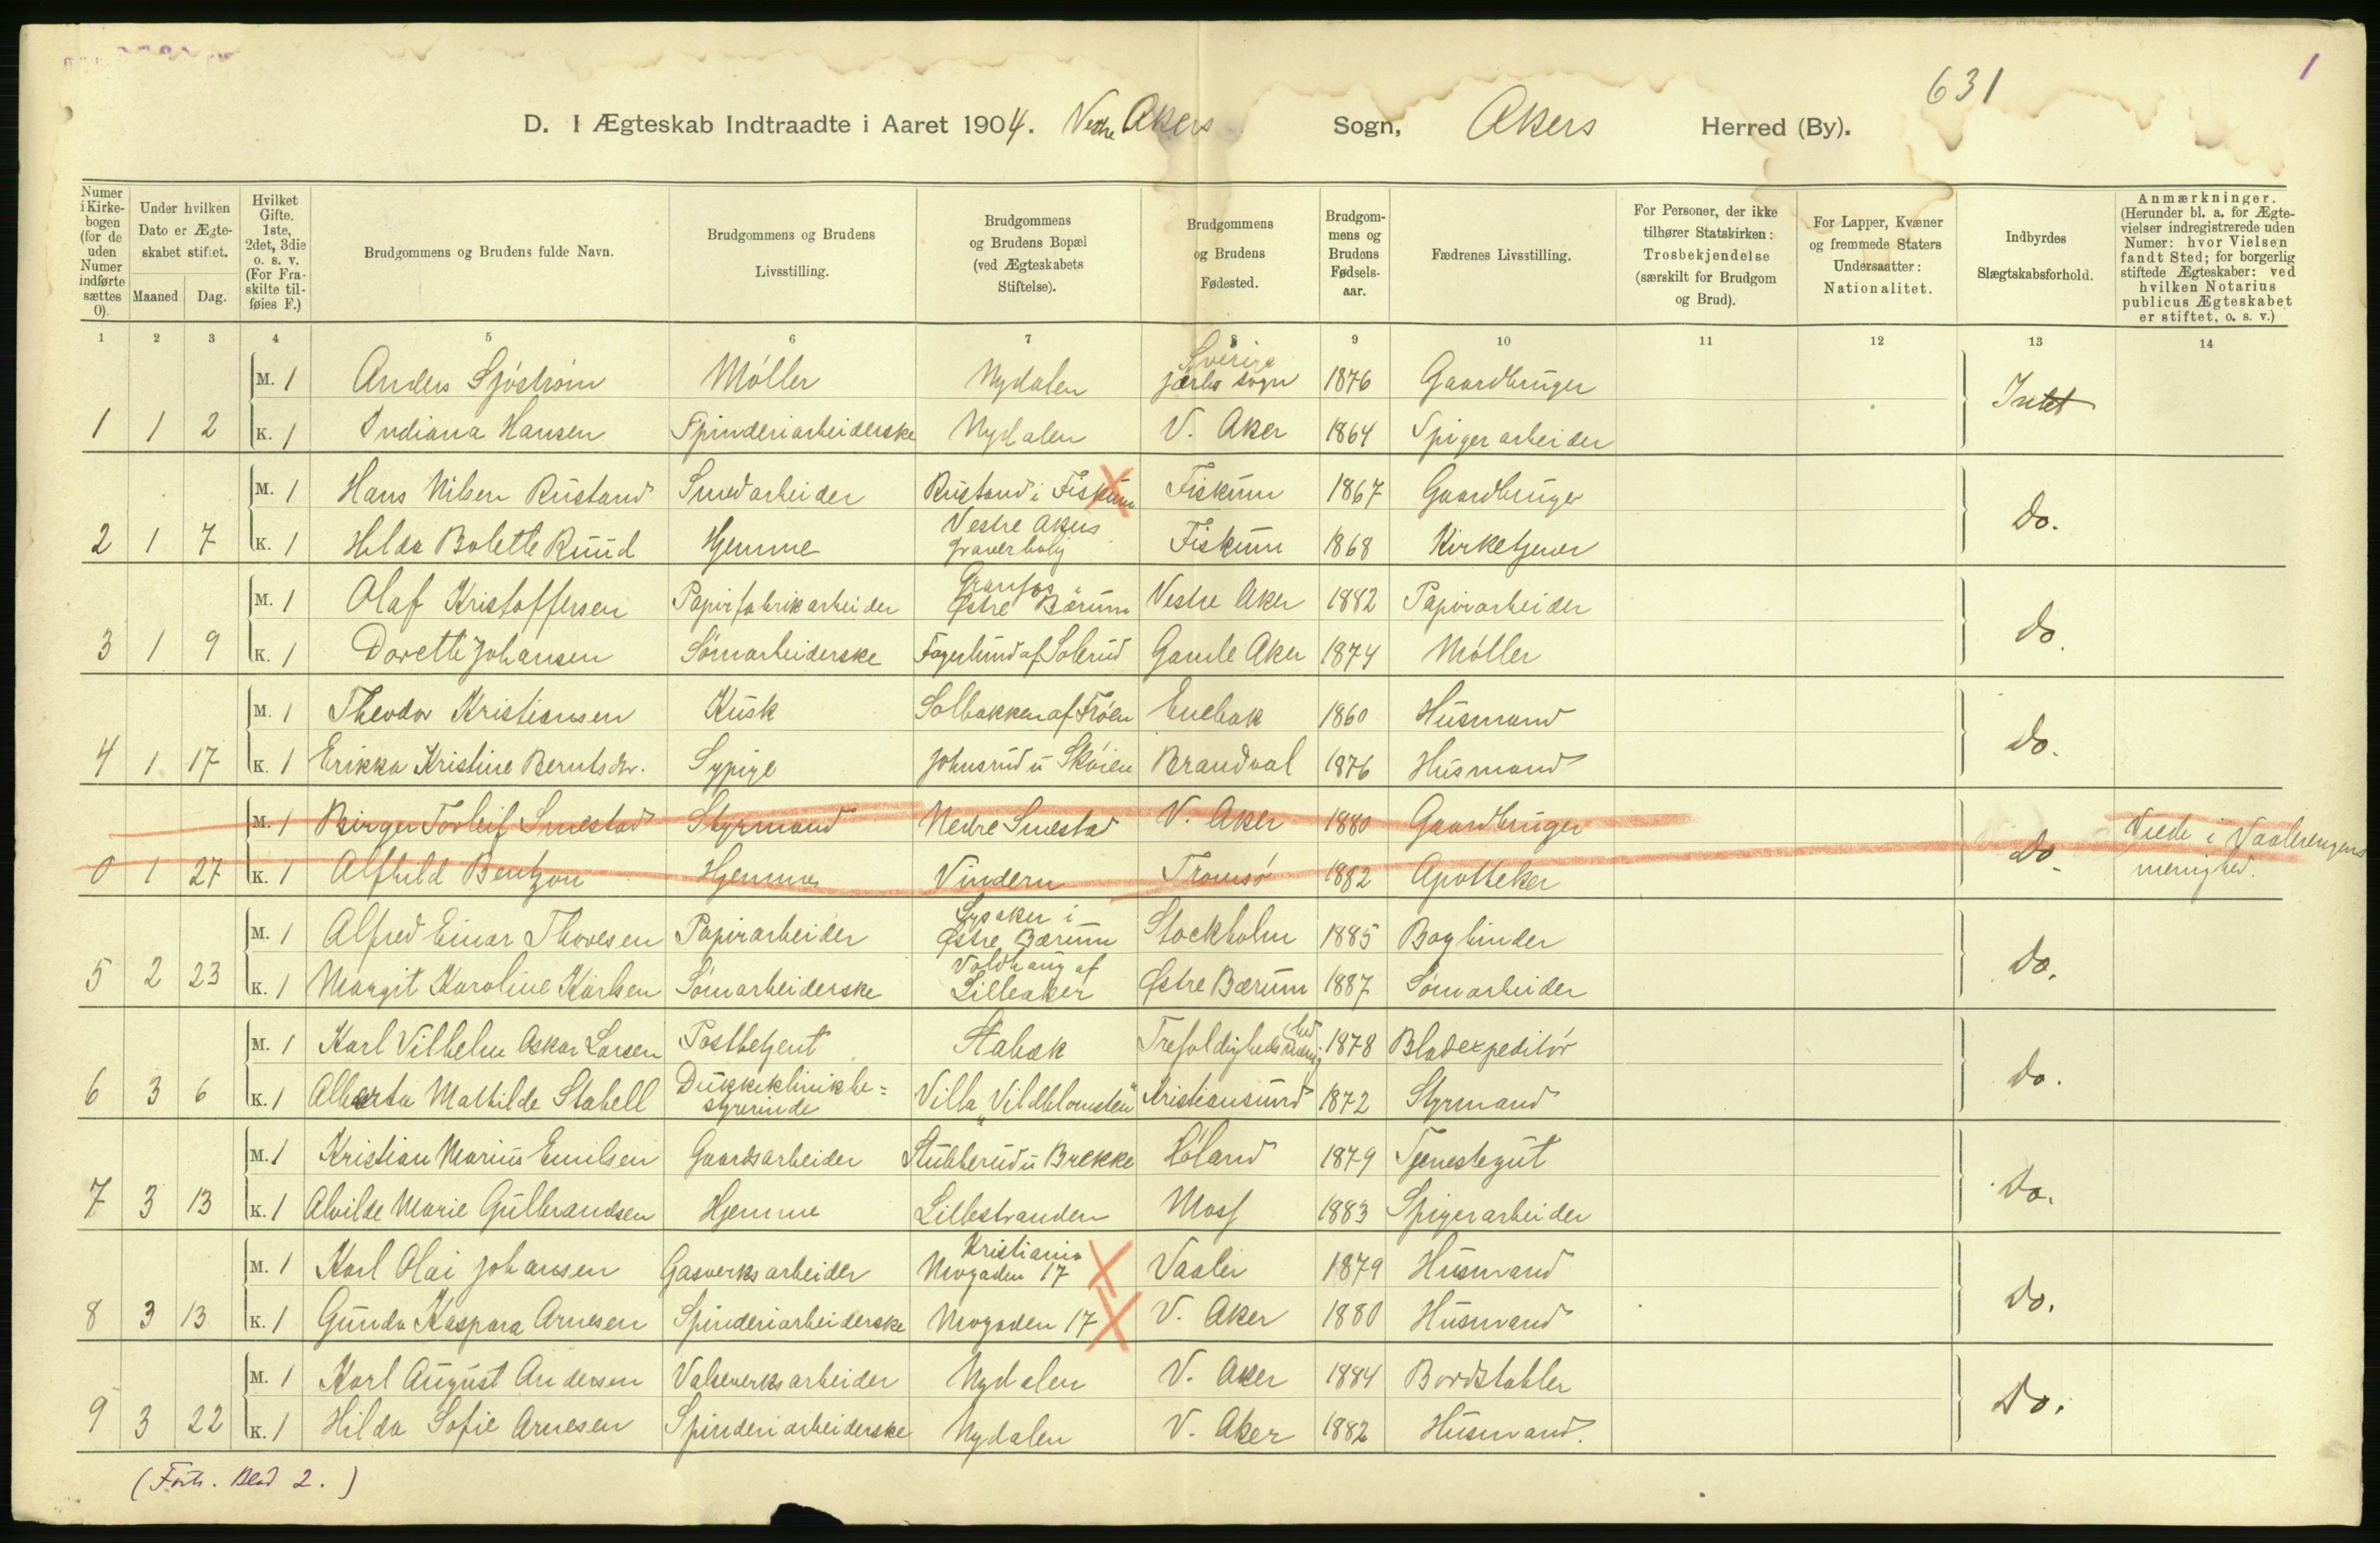 1
631
D. I Ægteskab Indtraadte i Aaret 1904. Vestre Akers Sogn, Akers Herred (By).
Numer i Kirke-bogen (for de uden Numer indførte sættes 0).
Under hvilken Dato er Ægte-skabet stiftet.
Maaned Dag.
Hvilket Gifte. 1ste, 2det, 3die o. s. v. (For Fra-skilte til-føies F.)
Brudgommens og Brudens fulde Navn.
Brudgommens og Brudens Livsstilling.
Brudgommens og Brudens Bopæl (ved Ægteskabets Stiftelse).
Brudgommens og Brudens Fødested.
Brudgom-mens og Brudens Fødsels-aar.
Fædrenes Livsstilling.
For Personer, der ikke tilhører Statskirken: Trosbekjendelse (særskilt for Brudgom og Brud).
For Lapper, Kvæner og fremmede Staters Undersaatter: Nationalitet.
Indbyrdes Slægtskabsforhold.
Anmærkninger. (Herunder bl. a. for Ægte-vielser indregistrerede uden Numer: hvor Vielsen fandt Sted; for borgerlig stiftede Ægteskaber: ved hvilken Notarius publicus Ægteskabet er stiftet, o. s. v.)
1 2 3 4 5 6 7 8 9 10 11 12 13 14
M. 1 Anders Sjöström Møller Nydalen Sverige Jærbo sogn 1876 Gaardbruger Intet
1 1 2 K. 1 Indiana Hansen Spinderiarbeiderske Nydalen V. Aker 1864 Spigerarbeider
M. 1 Hans Nilsen Rustand Smedarbeider Rustand i Fiskum Fiskum 1867 Gaardbruger Do.
2 1 7 K. 1 Hilda Bolette Ruud Hjemme Vestre Akers graverbolig Fiskum 1868 Kirketjener
M. 1 Olaf Kristoffersen Papirfabrikarbeider Granfos Østre Bærum Vestre Aker 1882 Papirarbeider Do.
3 1 9 K. 1 Dorette Johansen Sømarbeiderske Fagerlund af Solerud Gamle Aker 1874 Møller
M. 1 Theodor Kristiansen Kusk Solbakken af Frøen Enebak 1860 Husmand Do.
4 1 17 K. 1 Erikka Kristine Berntsdr. Sypige Johnsrud u Skøien Brandval 1876 Husmand
M. 1 Birger Torleif Smestad Styrmand Nedre Smestad V. Aker 1880 Gaardbruger Do. Viede i Vaalerengens menighed.
0 1 27 K. 1 Alfhild Bentzon Hjemme Vindern Tromsø 1882 Apotheker
M. 1 Alfred Einar Thoresen Papirarbeider Lysaker i Østre Bærum Stockholm 1885 Bogbinder Do.
5 2 23 K. 1 Margit Karoline Karlsen Sømarbeiderske Voldhaug af Lilleaker Østre Bærum 1887 Sømarbeider
M. 1 Karl Vilhelm Oskar Larsen Postbetjent Stabæk Trefoldigheds 1878 Bladexpeditør Do.
6 3 6 K. 1 Alberta Mathilde Stabell Dukkeklinikbe=styrerinde Villa „Vildblomsten" Kristiansund 1872 Styrmand
M. 1 Kristian Marius Emilsen Gaardsarbeider Stubberud u Brekke Høland 1879 Tjenestegut Do.
7 3 13 K. 1 Alvilde Marie Gulbrandsen Hjemme Lillestranden Moss 1883 Spigerarbeider
M. 1 Karl Olai Johansen Gasverksarbeider Kristiania Mogaden 17 Vaaler 1879 Husmand Do.
8 3 13 K. 1 Gunda Kaspara Arnesen Spinderiarbeiderske Mogaden 17 V. Aker 1880 Husmand
M. 1 Karl August Andersen Valseverksarbeider Nydalen V. Aker 1884 Bordstabler Do.
9 3 22 K. 1 Hilda Sofie Arnesen Spinderiarbeiderske Nydalen V. Aker 1882 Husmand.
(Forts. Blad 2.)